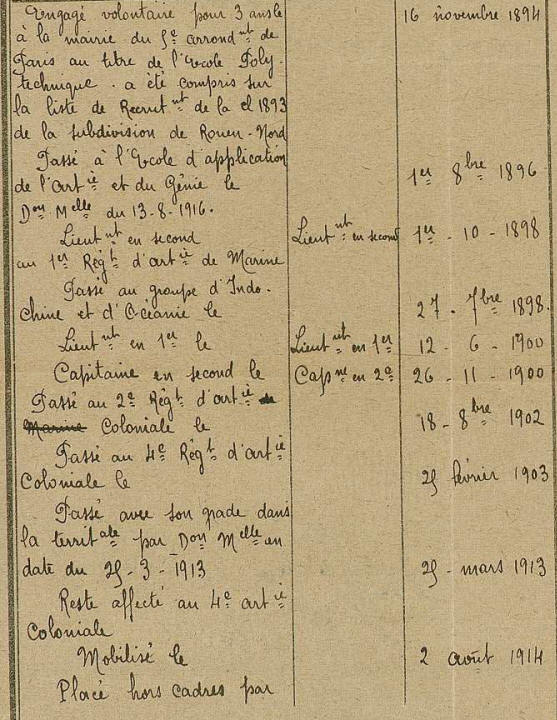 Engagé volontaire pour 3 ans le 16 novembre 1894
à la mairie du 5e arrondnt de
Paris au titre de l'Ecole Poly-
technique. a été compris sur
la liste de Recrutnt de la cl 1893
de la subdivision de Rouen-Nord
Passé à l'Ecole d'application
de l'artie et du Génie le 1er 8bre 1896
Don Melle du 13-8-1916.
Lieutnt en second Lieutnt en second 1er - 10 - 1898
au 1er Régt d'artie de Marine
Passé au groupe d'Indo-
chine et d'Océanie le 27 - 7bre 1898.
Lieutnt en 1er le Lieutnt en 1er 12 - 6 - 1900
Capitaine en second le Capne en 2d 26 - 11 - 1900
Passé au 2e Régt d'artie de
Marine Coloniale le 18 - 8bre 1902
Passé au 4e Régt d'artie
Coloniale le 25 février 1903
Passé avec son grade dans
la territale par Don Melle en
date du 25-3-1913 25 - mars 1913
Reste affecté au 4e artie
Coloniale
Mobilisé le 2 août 1914
Placé hors cadres par